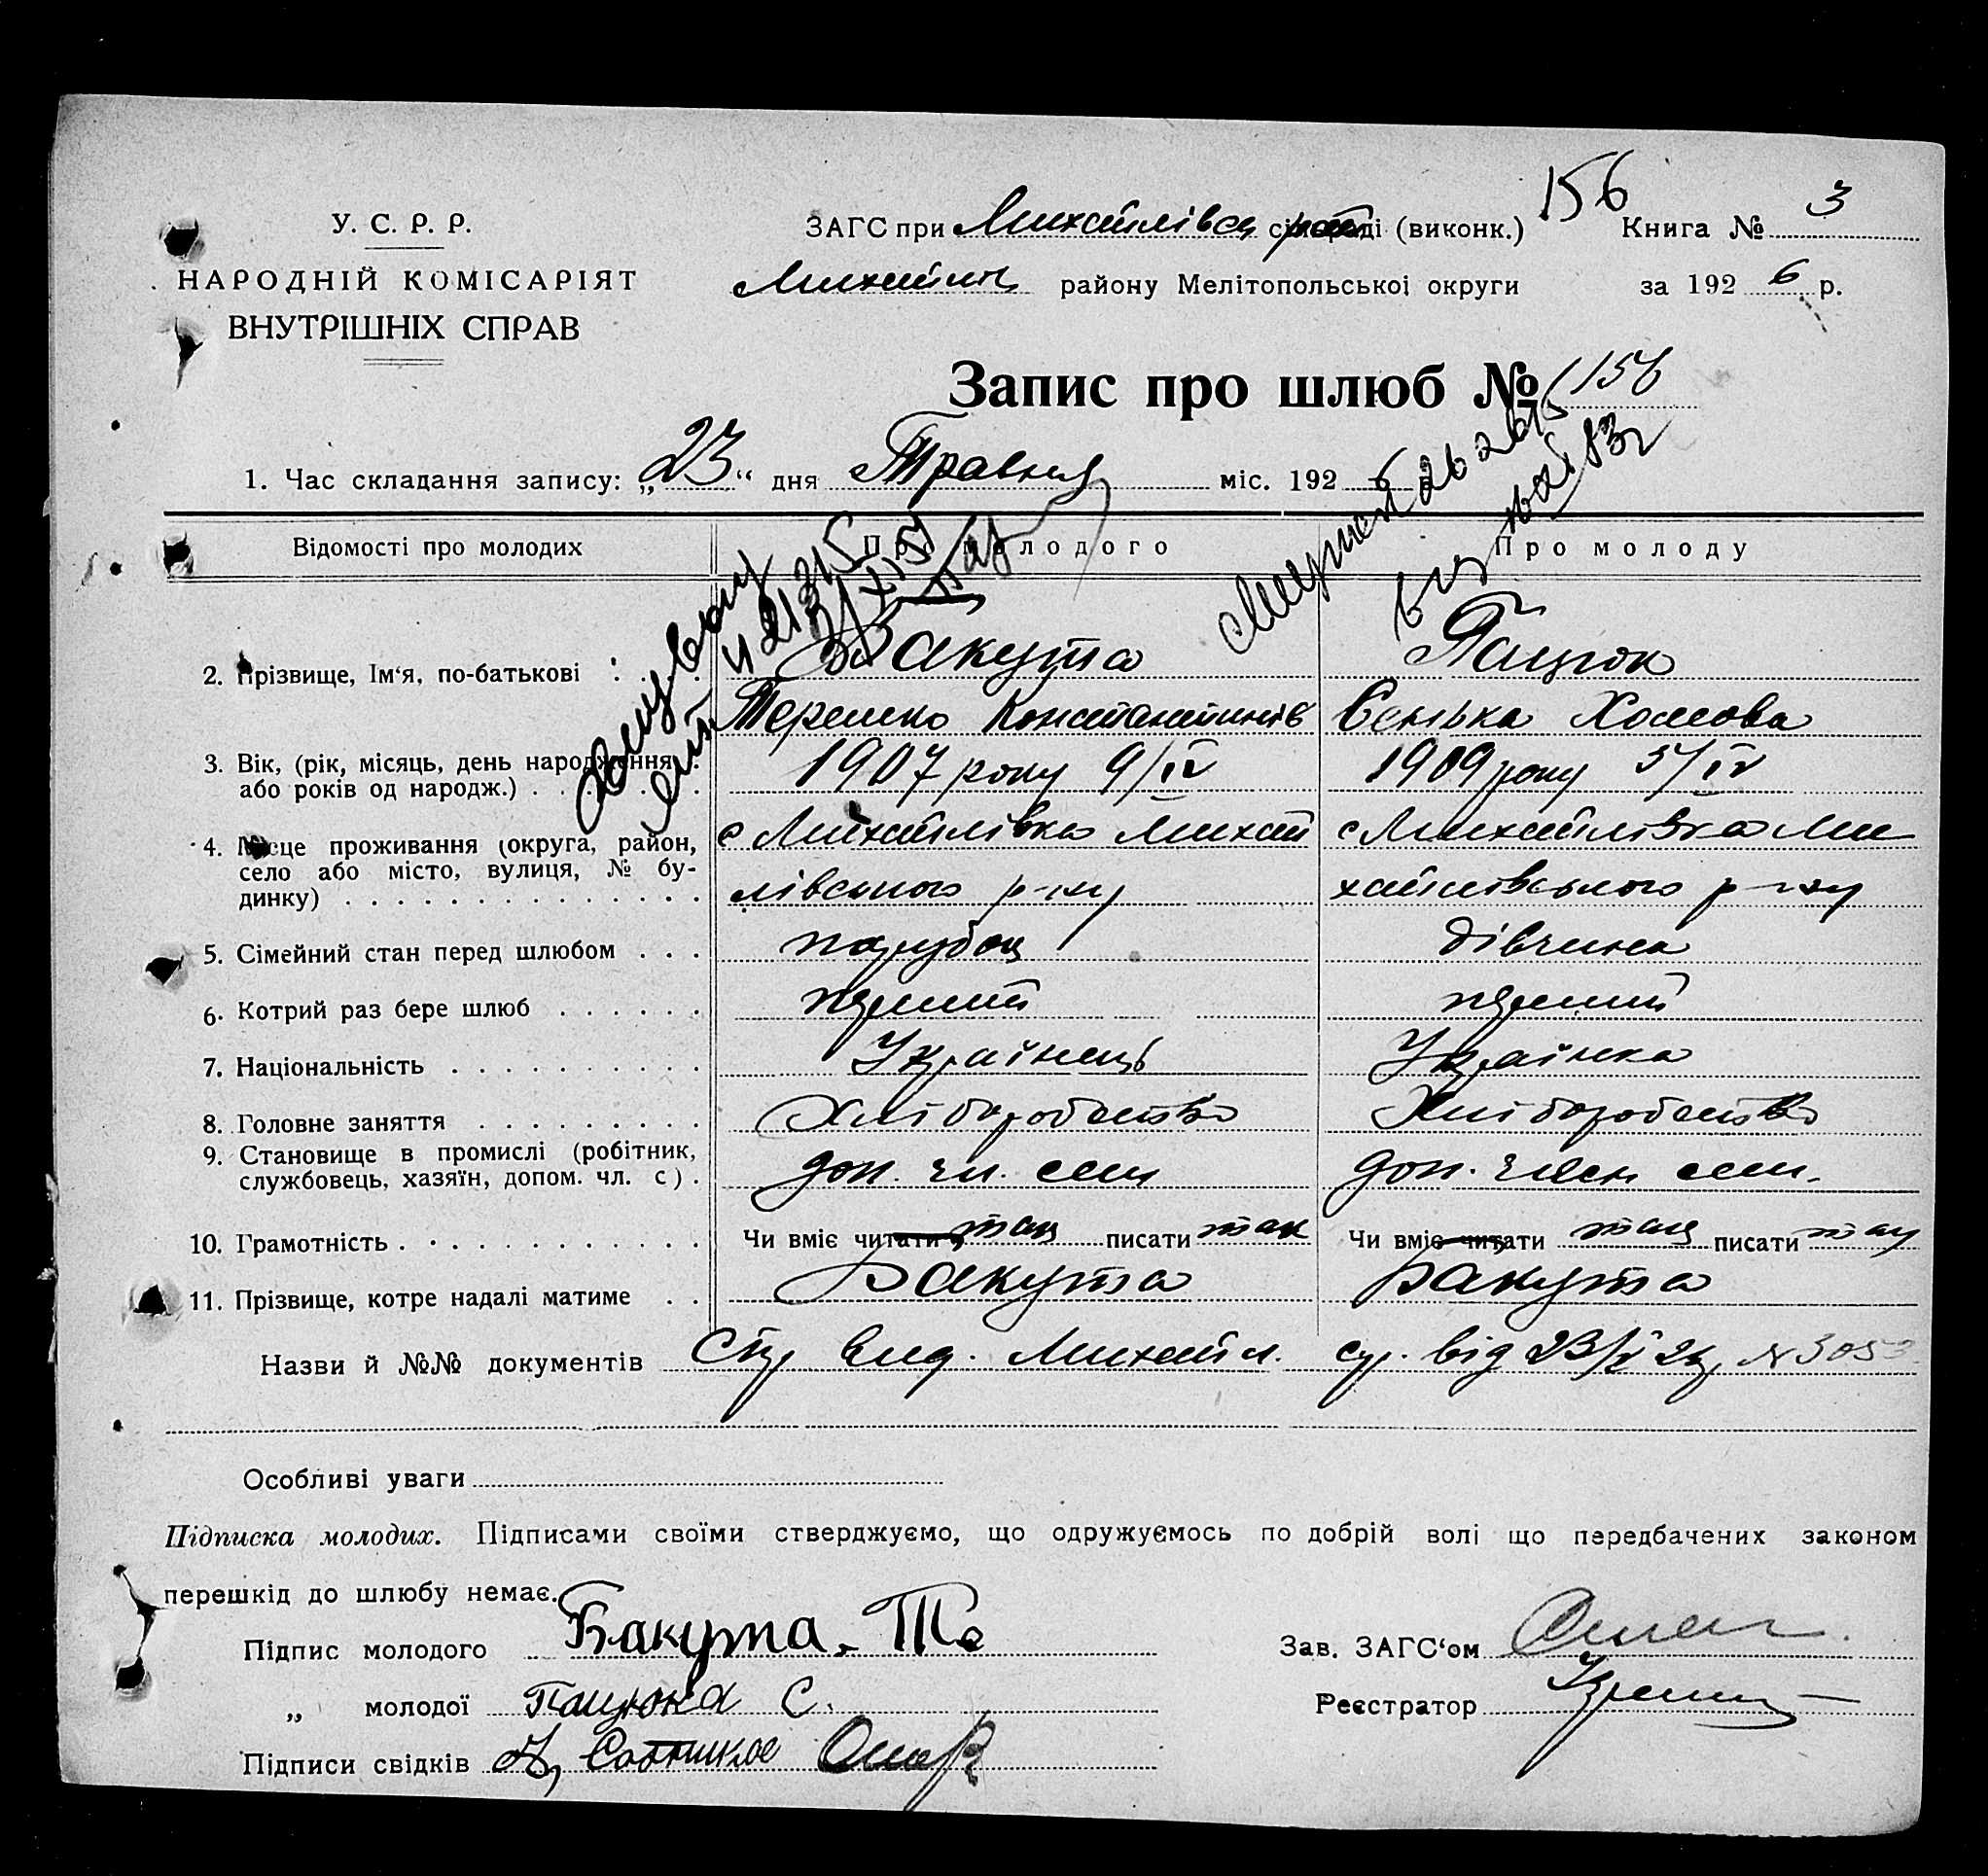 156
У. С. Р. Р.
ЗАГС при Михайлівсц сільраді (виконк.) Книга № 3
НАРОДНІЙ КОМІСАРІЯТ
району Мелітопольської округи за 1926 р.
ВНУТРІШНІХ СПРАВ
Запис про шлюб № 156
1. Час складання запису: „23“ дня Травня міс. 1926
Відомості про молодих Про молодого Про молоду
2. Прізвище, Ім‘я, по-батькові Бакута Пацюк
Терешко Константинів Сенька Хомова
3. Вік, (рік, місяць, день народження 1907 року 9/IV 1909 року
або років од народж.)
4. Місце проживання (округа, район, с Михайлівка Михай с Михайлівка Ми
село або місто, вулиця, № бу- лівського р-ну хайлівського р-ну
динку)
5. Сімейний стан перед шлюбом парубок дівчина
6. Котрий раз бере шлюб перший перший
7. Національність Українець Українка
8. Головне заняття Хліборобство Хліборобство
9. Становище в промислі (робітник, доп. чл. сем доп. член сем.
службовець, хазяїн, допом. чл. с)
10. Грамотність Чи вміє читати так писати так Чи вміє читати так писати так
11. Прізвище, котре надалі матиме Бакута Бакута
Назви й №№ документів Михайл. від 23/V 26 № 305
Особливі уваги
Підписка молодих. Підписами своїми стверджуємо, що одружуємось по добрій волі що передбачених законом
перешкід до шлюбу немає.
Підпис молодого Бакута. Те Зав. ЗАГС‘ом
„ молодої Пацюка С. Реєстратор
Підписи свідків